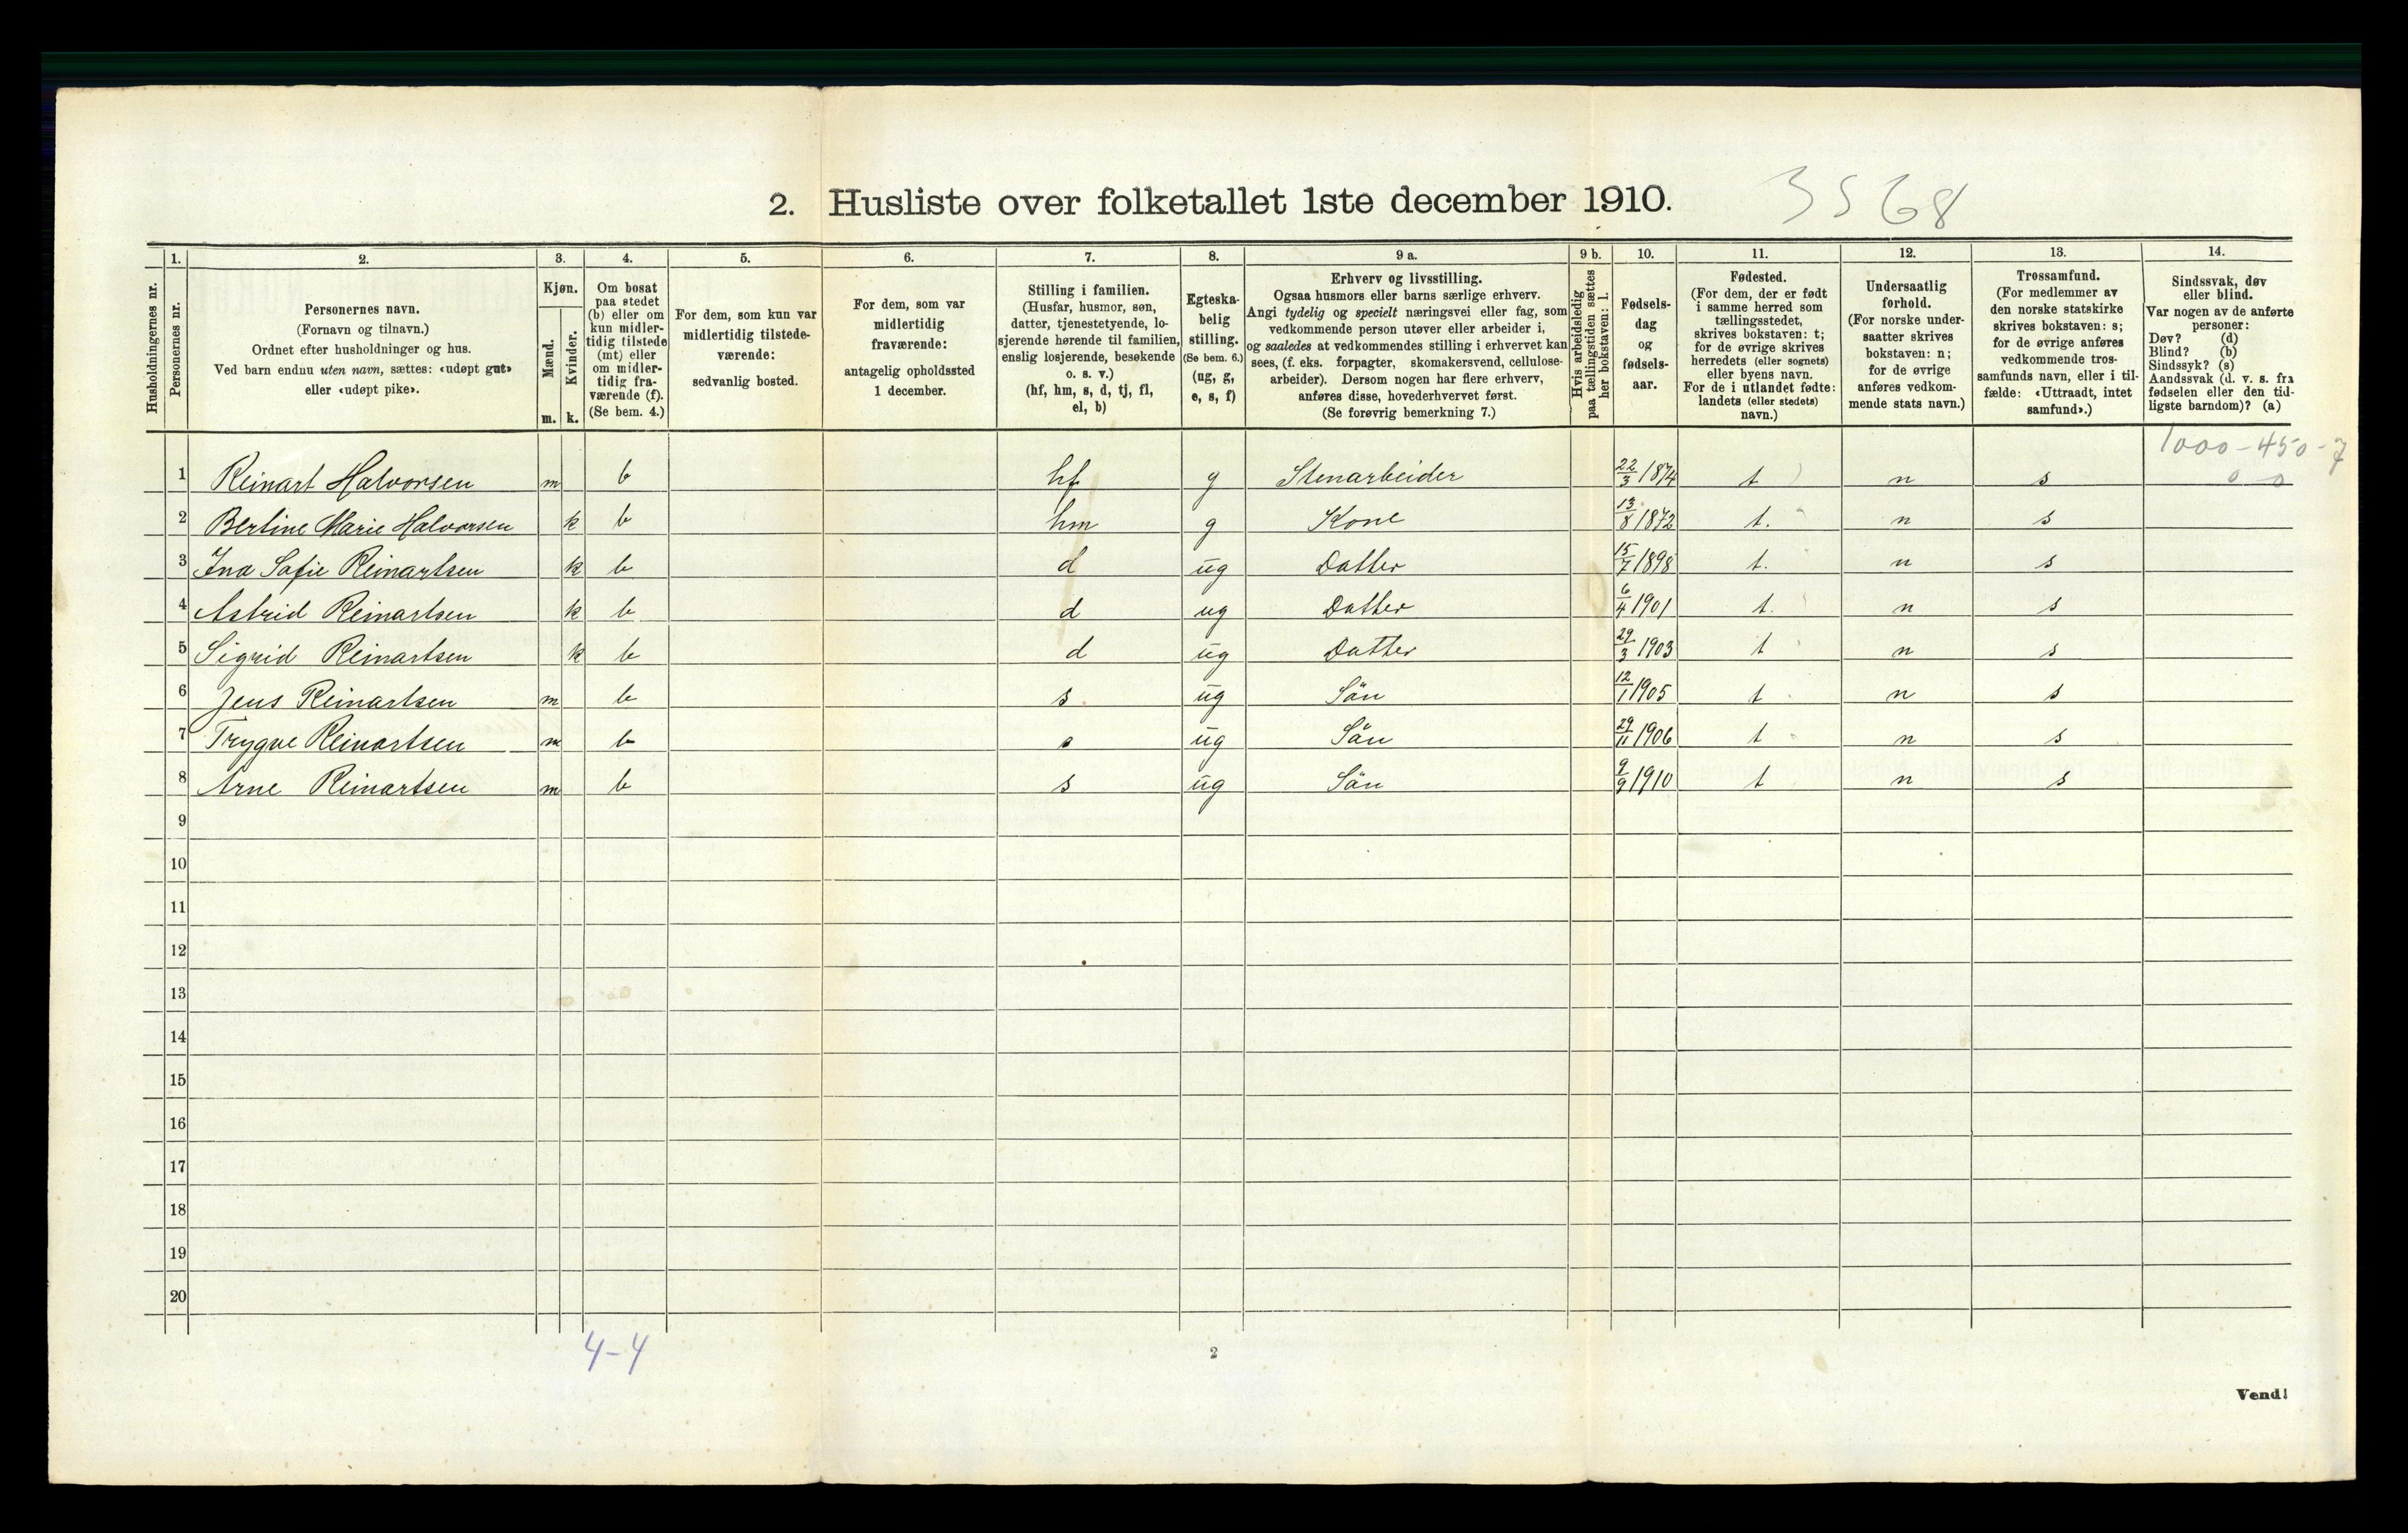 2. Husliste over folketallet 1ste december 1910.
3568
Husholdningernes nr.
1.
Personernes nr.
2.
Personernes navn.
(Fornavn og tilnavn.)
Ordnet efter husholdninger og hus.
Ved barn endnu uten navn, sættes: «udøpt gut»
eller «udøpt pike».
3.
Kjøn.
Mænd.
m.
Kvinder.
k.
4.
Om bosat
paa stedet
(b) eller om
kun midler-
tidig tilstede
(mt) eller
om midler-
tidig fra-
værende (f).
(Se bem. 4.)
5.
For dem, som kun var
midlertidig tilstede-
værende:
sedvanlig bosted.
6.
For dem, som var
midlertidig
fraværende:
antagelig opholdssted
1 december.
7.
Stilling i familien.
(Husfar, husmor, søn,
datter, tjenestetyende, lo-
sjerende hørende til familien,
enslig losjerende, besøkende
o. s. v.)
(hf, hm, s, d, tj, fl,
el, b)
8.
Egteska-
belig
stilling.
(Se bem. 6.)
(ug, g,
e, s, f)
9 a.
Erhverv og livsstilling.
Ogsaa husmors eller barns særlige erhverv.
Angi tydelig og specielt næringsvei eller fag, som
vedkommende person utøver eller arbeider i,
og saaledes at vedkommendes stilling i erhvervet kan
sees, (f. eks. forpagter, skomakersvend, cellulose-
arbeider). Dersom nogen har flere erhverv,
anføres disse, hovederhvervet først.
(Se forøvrig bemerkning 7.)
9 b.
Hvis arbeidsledig
paa tællingstiden sættes
her bokstaven: l.
10.
Fødsels-
dag
og
fødsels-
aar.
11.
Fødested.
(For dem, der er født
i samme herred som
tællingsstedet,
skrives bokstaven: t;
for de øvrige skrives
herredets (eller sognets)
eller byens navn.
For de i utlandet fødte:
landets (eller stedets)
navn.)
12.
Undersaatlig
forhold.
(For norske under-
saatter skrives
bokstaven: n;
for de øvrige
anføres vedkom-
mende stats navn.)
13.
Trossamfund.
(For medlemmer av
den norske statskirke
skrives bokstaven: s;
for de øvrige anføres
vedkommende tros-
samfunds navn, eller i til-
fælde: «Uttraadt, intet
samfund».)
14.
Sindssvak, døv
eller blind.
Var nogen av de anførte
personer:
Døv? (d)
Blind? (b)
Sindssyk? (s)
Aandssvak (d. v. s. fra
fødselen eller den tid-
ligste barndom)? (a)
1000-450-7
0 0
1 Reinart Halvorsen m b hf g Stenarbeider 22/3 1874 t n s
2 Bertine Marie Halvorsen k b hm g Kone 13/8 1872 t. n s
3 Ina Sofie Reinartsen k b d ug Datter 15/7 1898 t. n s
4 Astrid Reinartsen k b d ug Datter 6/4 1901 t. n s
5 Sigrid Reinartsen k b d ug Datter 29/3 1903 t n s
6 Jens Reinartsen m b s ug Sön 12/1 1905 t n s
7 Trygve Reinartsen m b s ug Sön 29/11 1906 t n s
8 Arne Reinartsen m b s ug Sön 9/9 1910 t n s
9
10
11
12
13
14
15
16
17
18
19
20
4-4
2
Vend!